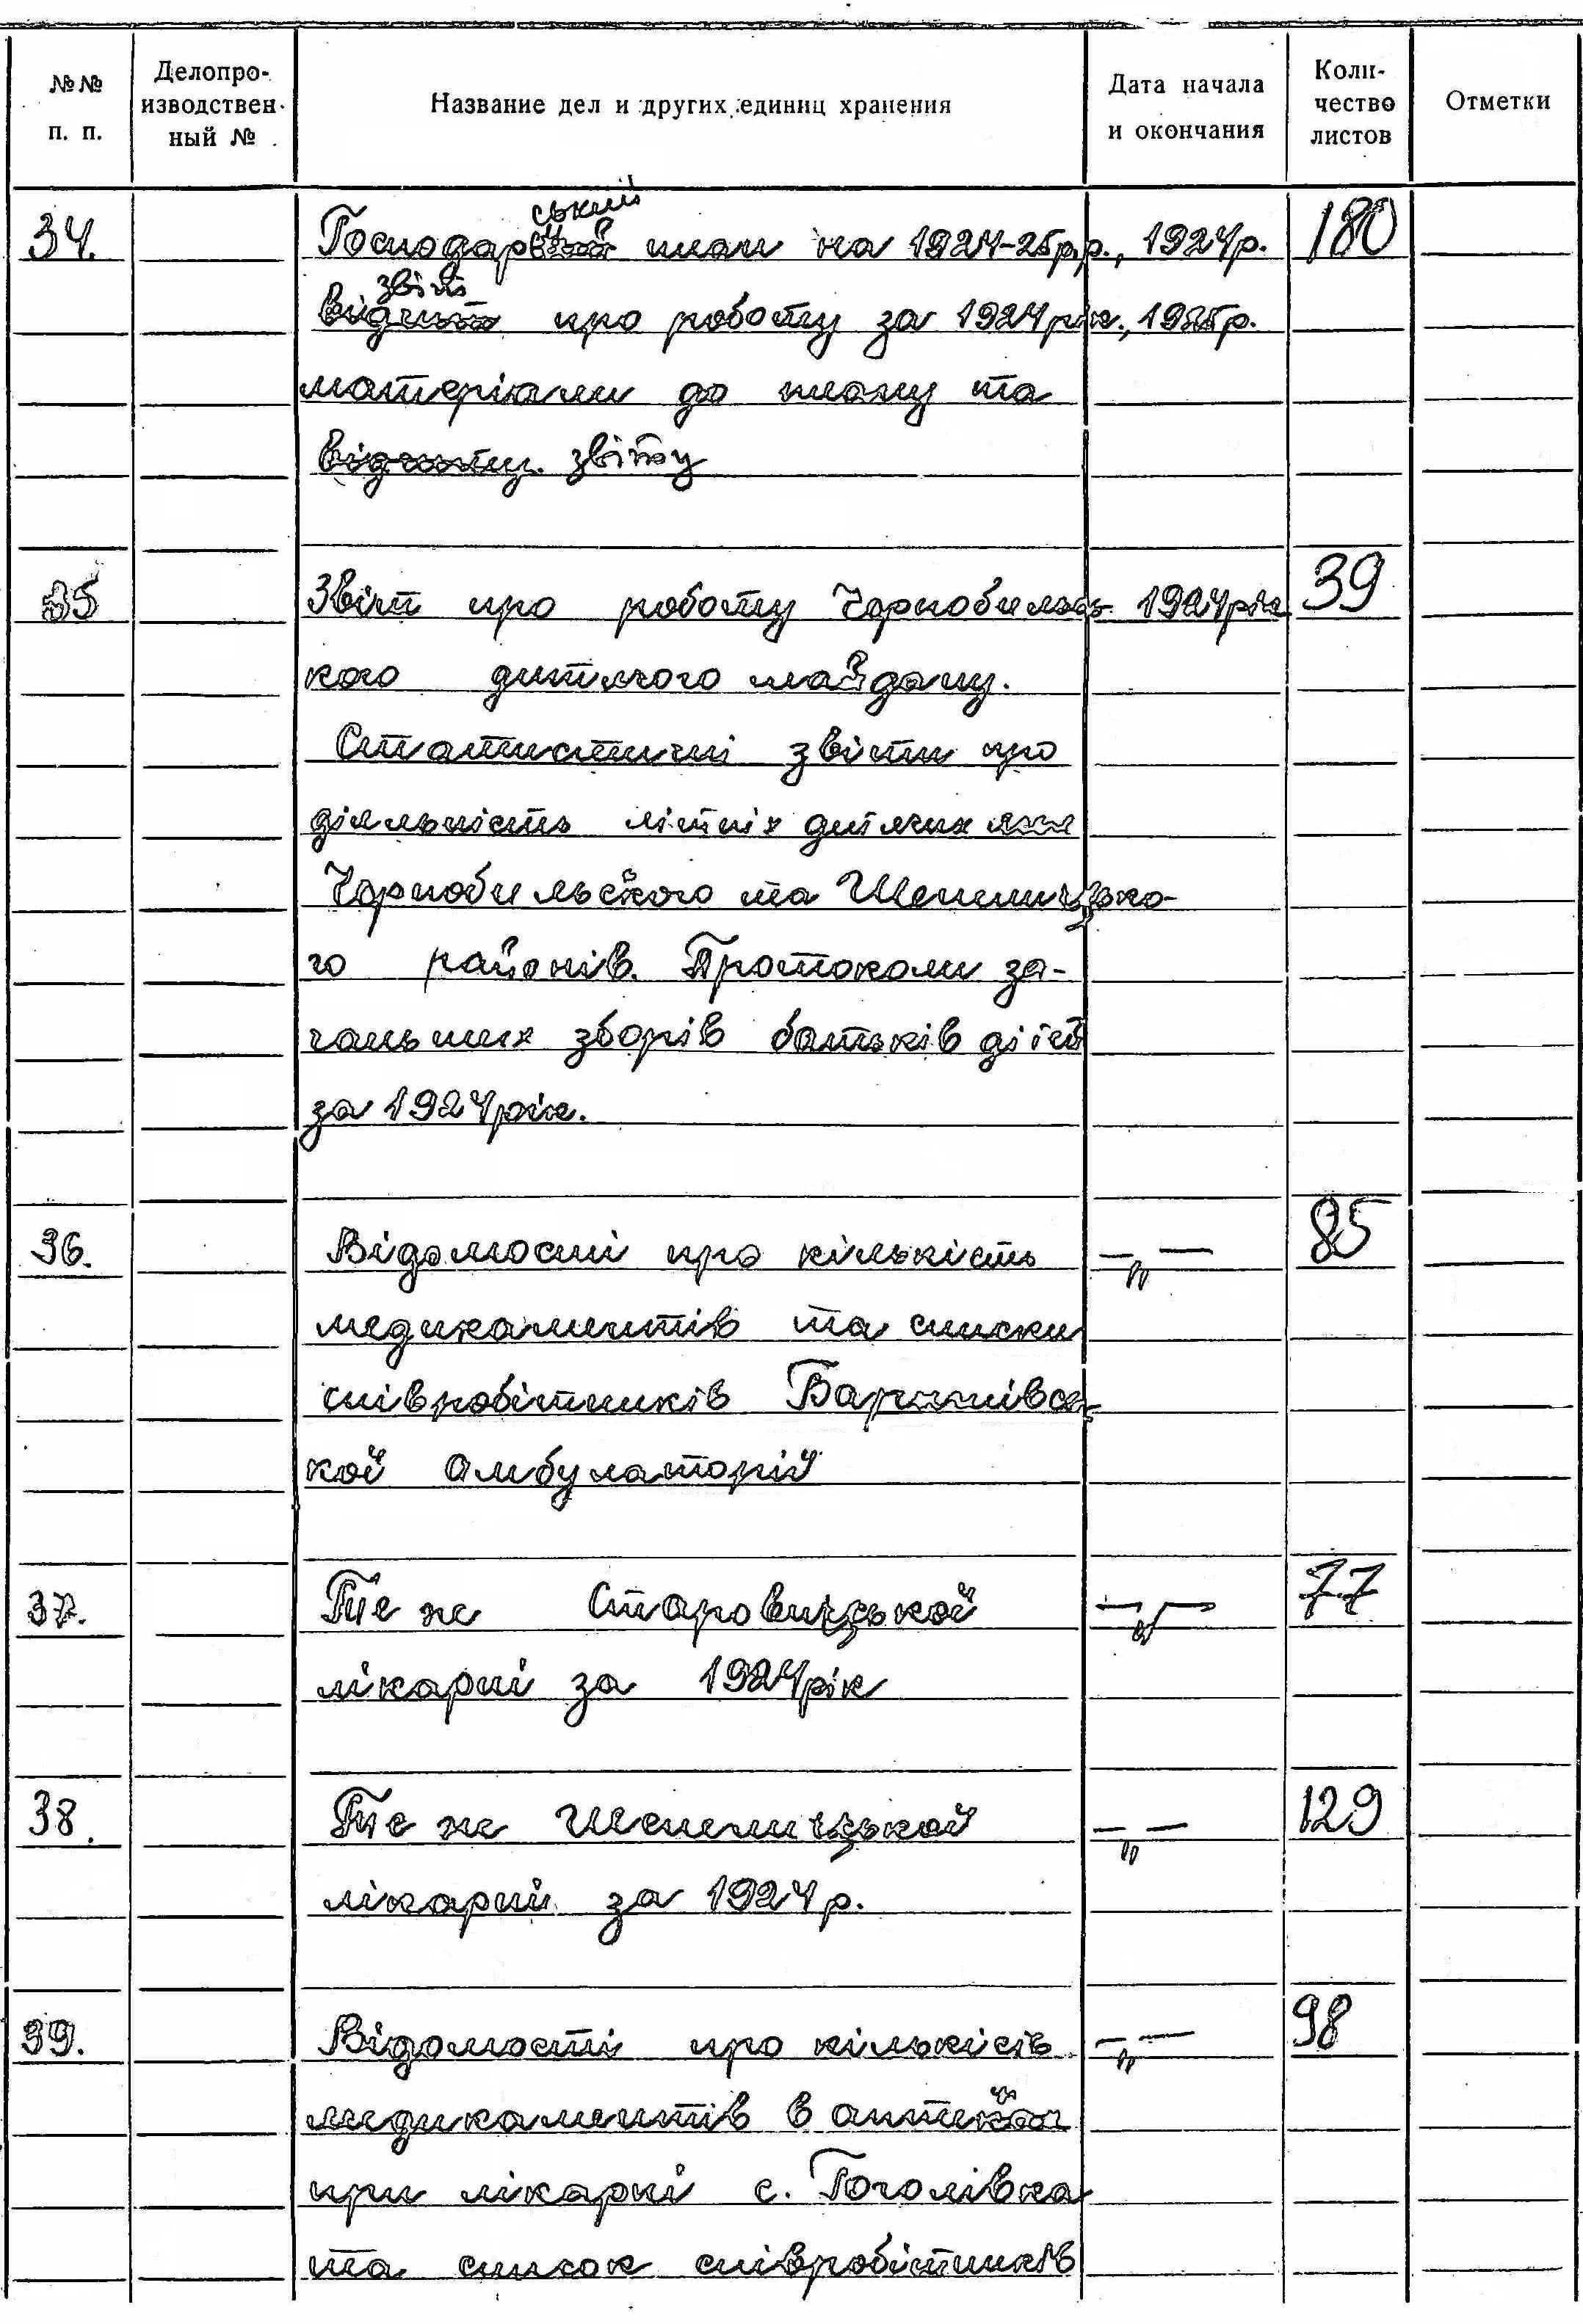 №№ п. п. Делопро- изводствен- ный № Название дел и других единиц хранения Дата начала и окончания Коли- чество листов Отметки
ський
34. Господар план на 1924-25р.р., 1924р. 180
звіт
відчит про роботу за 1924 рік., 1925р.
матеріали до плану та
відчиту. звіту
35 Звіт про роботу Чорнобильсь- 1924рік 39
кого дитячого майдану.
Статистичні звіти про
діяльність літніх дитячих ясел
Чорнобильського та Шепелицько-
го районів. Протоколи за-
гальних зборів батьків дітей
за 1924рік.
36. Відомості про кількість —„— 85
медикаментів та списки
співробітників Баришівсь-
кой амбулаторій
37. Те ж Старовицької —„— 77
лікарні за 1924рік
38. Те ж Шепелицької —„— 129
лікарні за 1924 р.
39. Відомості про кількість —„— 98
медикаментів в аптеках
при лікарні с. Гоголівка
та список співробітників